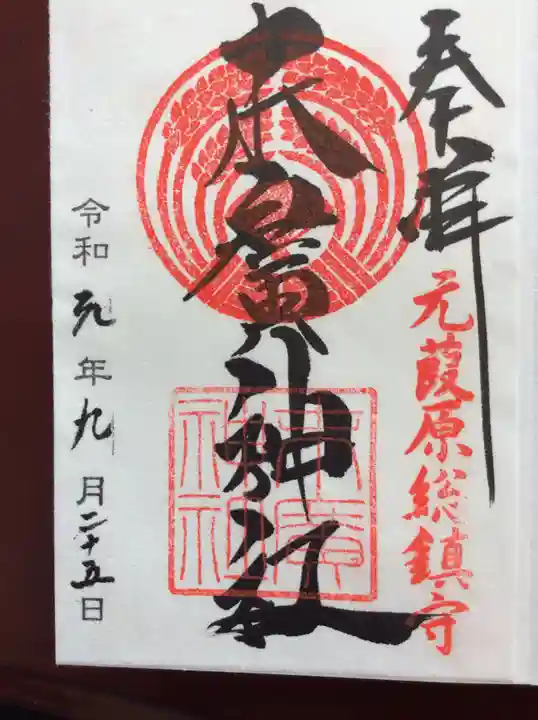 奉拝
元葭原総鎮守
末廣神社
末廣神社
令和元年九月二十五日